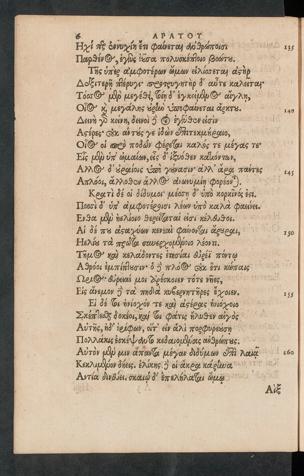 6 ΑΡΑΤΟΥ
Ηχί περ ἐννυχίη ἔτι φαίνεται ἀνθρώποισι 135
Παρθένος, ἐγγὺς ἐοῦσα πολυσκέπτοιο βοώτεω.
Τῆς ὑπὲρ ἀμφοτέρων ὤμων εἱλίσσεται ἀστὴρ
Δεξιτερῇ πτέρυγι· προτρυγητὴρ δ' αὖτε καλεῖται·
Τόσσος μὲν μεγέθει, τοίη δ' ἐγκείμενος αἴγλη,
Οἷος καὶ μεγάλης οὐρὴν ὑποφαίνεται ἄρκτου. 140
Δεινὴ γὰρ κείνη, δεινοὶ δέ οἱ ἐγγύθεν εἰσὶν
Ἀστέρες· οὐκ ἂν τούς γε ἰδὼν ἐπιτεκμήραιο,
Οἷός οἱ πρὸ ποδῶν φέρεται καλός τε μέγας τε·
Εἷς μὲν ὑπωμαίων, εἷς δ' ἰξυόθεν κατιόντων,
Ἄλλος δ' οὐραίοις ὑπὸ γούνασιν· ἀλλ' ἄρα πάντες 145
Ἁπλόοι, ἄλλοθεν ἄλλος ἀνωνυμίη φορέονται.
Κρατὶ δέ οἱ δίδυμοι· μέσση δ' ὑπὸ καρκίνος ἐστί.
Ποσσὶ δ' ὑπ' ἀμφοτέροισι λέων ὑπὸ καλὰ φαείνει.
Ενθα μὲν ἠελίοιο θερείταταί εἰσι κέλευθοι.
Αἱ δέ που ἀσταχύων κενεαὶ φαίνονται ἄρουραι, 150
Ηελίου τὰ πρῶτα συνερχομένοιο λέοντι.
Τῆμος καὶ κελάδοντες ἐτησίαι εὐρέϊ πόντῳ
Ἀθρόοι ἐμπίπτουσιν· ὁ δὲ πλόος οὐκ ἔτι κώπαις
Ωριος· εὐρεῖαί μοι ἀρέσκοιεν τότε νῆες,
Εἰς ἄνεμον δὲ τὰ πηδὰ κυβερνητῆρες ἔχοιεν. 155
Εἰ δέ τοι ἡνίοχόν τε καὶ ἀστέρας ἡνιόχοιο
Σκέπτεσθαι δοκέοι, καί τοι φάτις ἤλυθεν αἰγὸς
Αὐτῆς, ἠδ' ἐρίφων, οἵτ' εἰν ἁλὶ πορφυρούση
Πολλάκις ἐσκέψαντο κεδαιομένους ἀνθρώπους,
Αὐτὸν μέν μιν ἅπαντα μέγαν διδύμων ἐπὶ λαιᾷ 160
Κεκλιμένον δήεις. ἑλίκης δέ οἱ ἄκρα κάρηνα
Ἀντία δινεύει. σκαιῷ δ' ἐπελήλαται ὤμῳ
Αἶξ